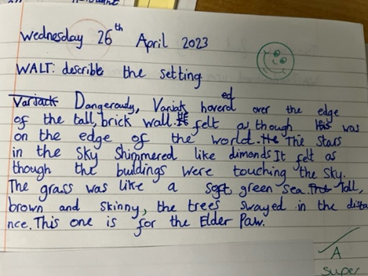 Wednesday 26th April 2023
WALT: describe the setting
Varjack Dangerously, Varjak hovered over the edge
of the tall, brick wall. It felt as though he was
on the edge of the world. The stars
in the sky shimmered like dimonds It felt as
though the buildings were touching the sky.
The grass was like a soft, green sea. Tall,
brown and skinny, the trees swayed in the dista
nce. This one is for the Elder Paw.
A
super